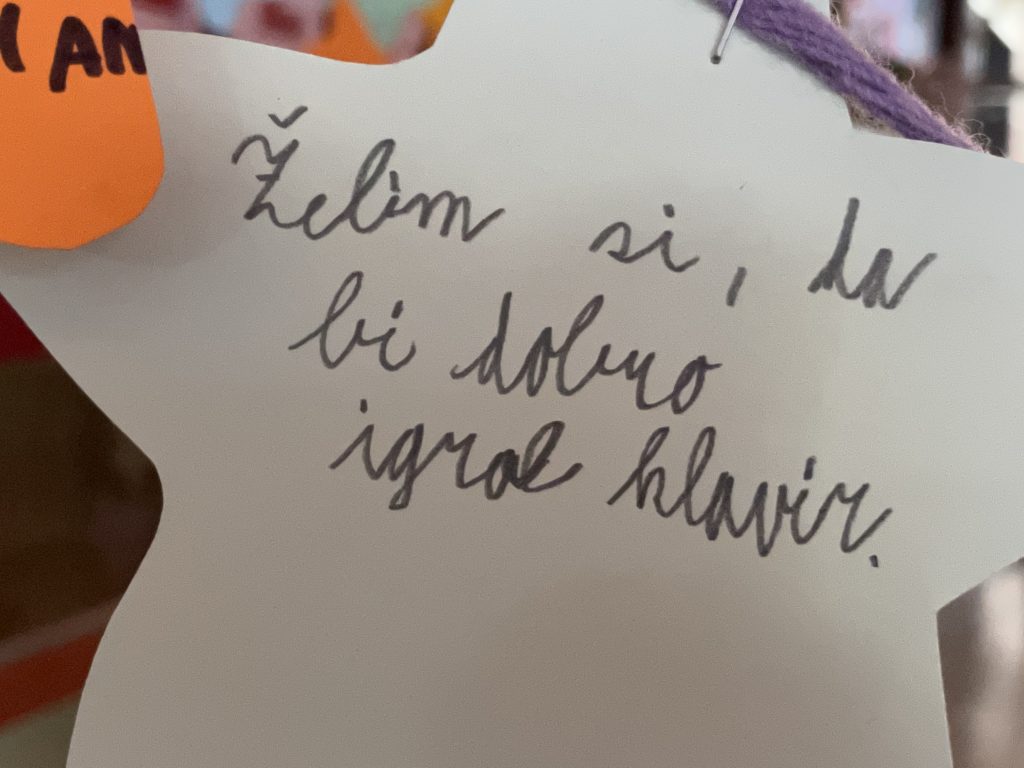 I AM
Želim si, da
bi dobro
igral klavir.